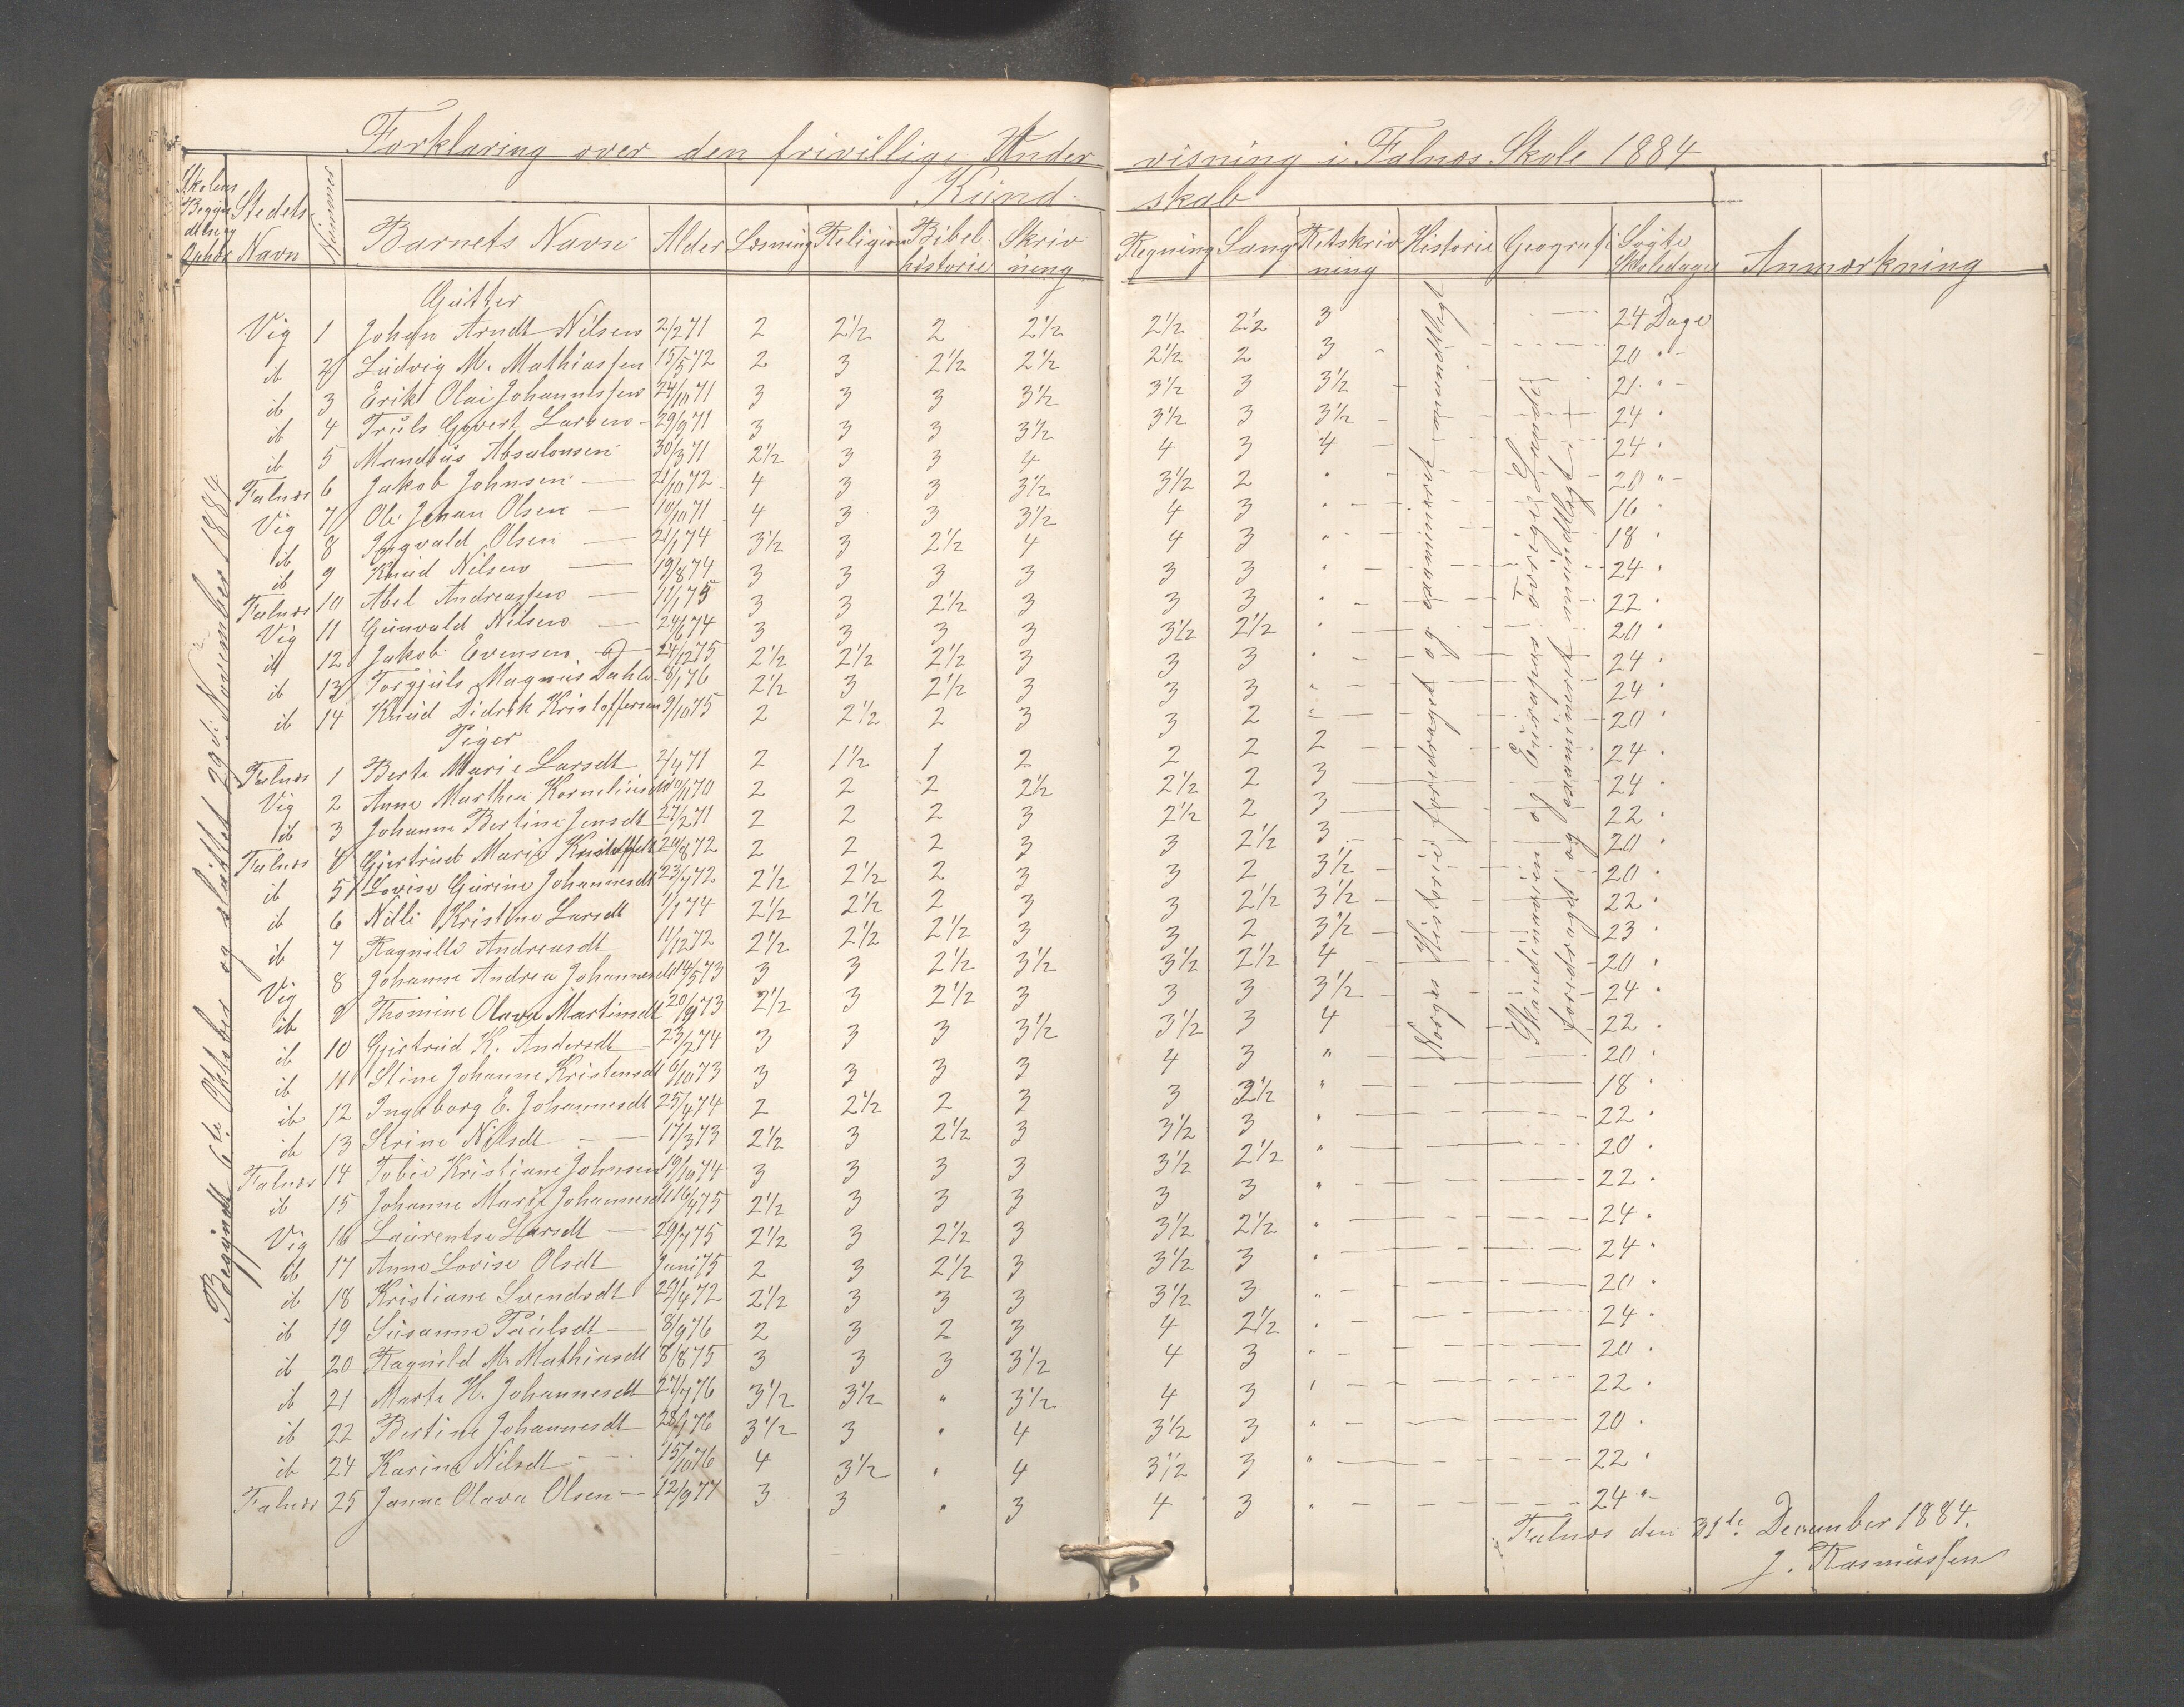 Forklaring over den frivillige Undervisning i Falnæs Skole 1884
Skolens Begyndelse og Ophør | Stedets Navn | Nummer | Barnets Navn | Alder | Kundskab | Læsning | Religion | Bibelhistorie | Skrivning | Regning | Sang | Retskrivning | Historie | Geografi | Søgte Skoledage | Anmærkning
Begyndt 6te Oktober og sluttet 29d: November 1884
Gutter
Vig 1 Johan Arndt Nilsen 2/2 71 2 2½ 2 2½ 2½ 2½ 3 24 Dage
ib 2 Ludvig M. Mathiassen 15/5 72 2 3 2½ 2½ 2½ 2 3 20 "
ib 3 Erik Olai Johannessen 24/10 71 3 3 3 3½ 3½ 3 3½ 21 "
ib 4 Truls Govert Larsen 29/9 71 3 3 3 3½ 3½ 3 3½ 24 "
ib 5 Mandius Absalonsen 30/3 71 2½ 3 3 4 4 3 4 24 "
Falnæs 6 Jakob Johnsen 21/10 72 4 3 3 3½ 3½ 2 " 20 "
Vig 7 Ole Johan Olsen 10/10 71 4 3 3 3½ 4 3 " 16 "
ib 8 Ingvald Olsen 21/1 74 3½ 3 2½ 4 4 3 " 18 "
ib 9 Knud Nilsen 19/8 74 3 3 3 3 3 3 " 24 "
Falnæs 10 Abel Andreassen 11/1 75 3 3 2½ 3 3 3 " 22 "
Vig 11 Gunvald Nilsen 24/6 74 3 3 3 3 3½ 2½ " 20 "
ib 12 Jakob Evensen 24/12 75 2½ 2½ 2½ 3 3 3 " 24 "
ib 13 Torgjuls Magnus Dahle 8/1 76 2½ 3 2½ 3 3 3 " 24 "
ib 14 Knud Didrik Kristoffersen 9/10 75 2 2½ 2 3 3 2 " 20 "
Piger
Falnæs 1 Berte Marie Larsdt 2/4 71 2 1½ 1 2 2 2 2 24 "
Vig 2 Anne Marthea Korneliusdt 10/11 70 2 2 2 2½ 2½ 2 3 24 "
ib 3 Johanne Bertine Jensdt 27/2 71 2 2 2 3 2½ 2 3 22 "
Falnæs 4 Gjertrud Marie Kristoffdt 24/8 72 2 2 2 3 3 2½ 3 20 "
ib 5 Lovise Gurine Johannesdt 23/7 72 2½ 2½ 2 3 3 2 3½ 20 "
ib 6 Nilli Kristine Larsdt 1/1 74 2½ 2½ 2 3 3 2½ 3½ 22 "
ib 7 Ragnille Andreasdt 11/12 72 2½ 2½ 2½ 3 3 2 3½ 23 "
Vig 8 Johanne Andrea Johannesdt 14/5 73 3 3 2½ 3½ 3½ 2½ 4 20 "
ib 9 Thomine Olava Martinsdt 20/9 73 2½ 3 2½ 3 3 3 3½ 24 "
ib 10 Gjertrud K. Andersdt 23/2 74 3 3 3 3½ 3½ 3 4 22 "
ib 11 Stine Johanne Kristensdt 9/10 73 3 3 3 3 4 3 " 20 "
ib 12 Ingeborg E. Johannesdt 25/4 74 2 2½ 2 3 3 2½ " 18 "
ib 13 Serine Nilsdt 17/3 73 2½ 3 2½ 3 3½ 3 " 22 "
Falnæs 14 Tobie Kristiane Johnsen 19/10 74 3 3 3 3 3½ 2½ " 20 "
ib 15 Johanne Marie Johannesdt 16/4 75 2½ 3 3 3 3 3 " 22 "
Vig 16 Laurentse Larsdt 29/7 75 2½ 3 2½ 3 3½ 2½ " 24 "
ib 17 Anne Lovise Olsdt Juni 75 2 3 2½ 3 3½ 3 " 24 "
ib 18 Kristiane Svendsdt 22/4 72 2½ 3 3 3 3½ 3 " 20 "
ib 19 Susanne Paulsdt 8/9 76 2 3 2 3 4 2½ " 24 "
ib 20 Ragnild M. Mathiasdt 8/8 75 3 3 3 3½ 4 3 " 20 "
ib 21 Marte H. Johannesdt 27/7 76 3½ 3½ " 3½ 4 3 " 22 "
ib 22 Bertine Johannesdt 28/1 76 3½ 3 " 4 3½ 3 " 20 "
ib 24 Karine Nilsdt 15/10 76 4 3½ " 4 3½ 3 " 22 "
Falnæs 25 Janne Olava Olsen 12/9 77 3 3 " 3 4 3 " 24 "
Norges Historie, foredraget og gjennemgaaet
Skandinavien og Europas øvrige Lande
foredraget og gjennemgaaet mundtligt
Falnæs den 31te December 1884.
J. Rasmussen